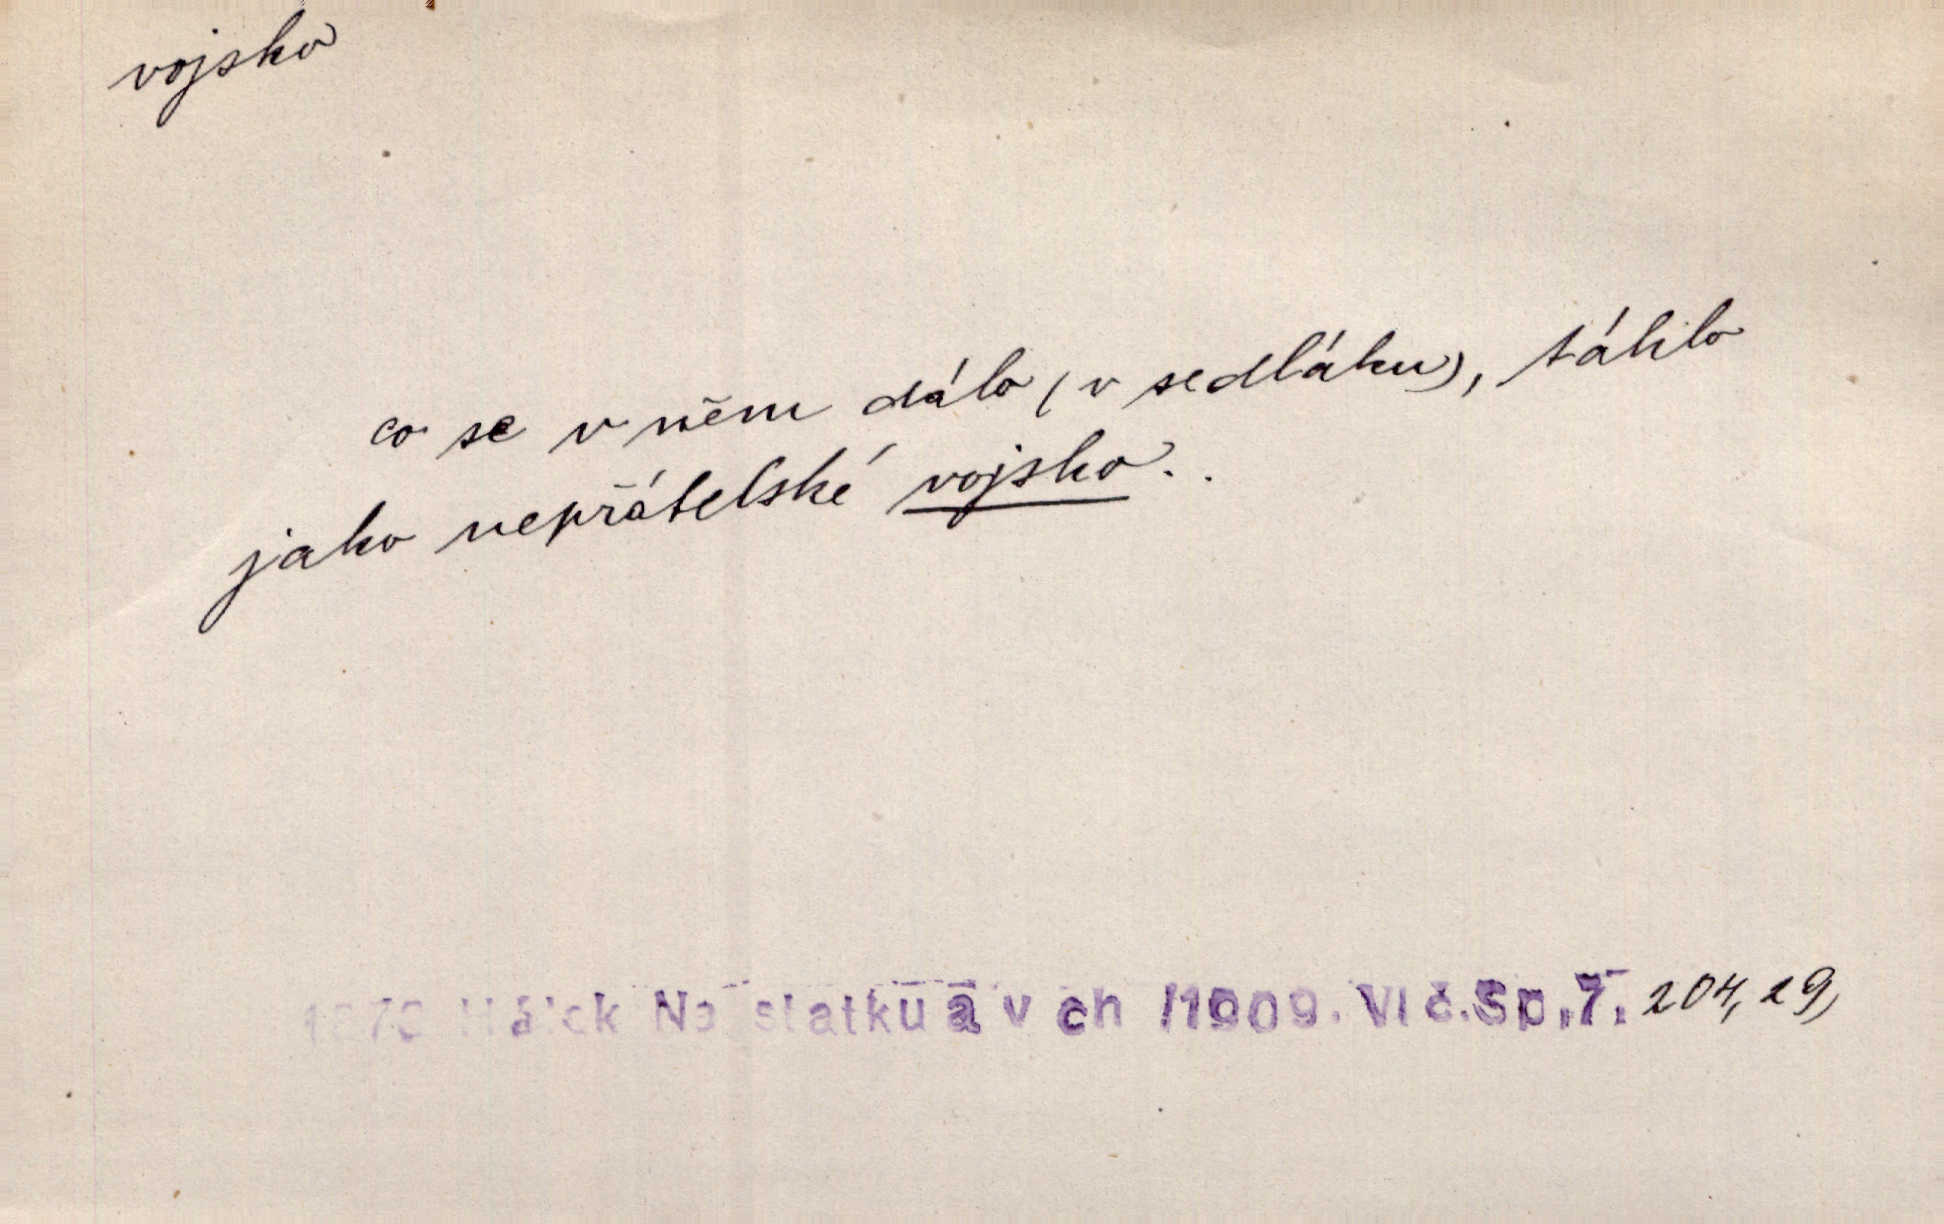 vojsko
co se v něm dálo (v sedláku), táhlo
jako nepřátelské vojsko..
Hálek Na statku a v ch /1909. Vlč.Sp.7. 204, 29,